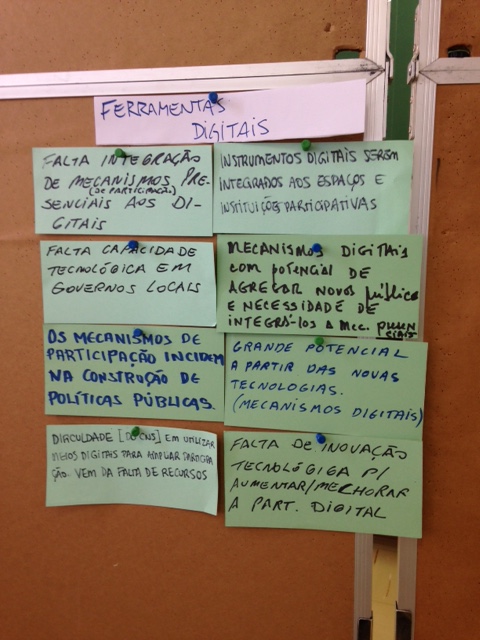 FERRAMENTAS
DIGITAIS
FALTA INTEGRAÇÃO
DE MECANISMOS PRE-
(DE PARTICIPAÇÃO)
SENCIAIS AOS DI-
GITAIS
INSTRUMENTOS DIGITAIS SEREM
INTEGRADOS AOS ESPAÇOS E
INSTITUIÇÕES PARTICIPATIVAS
FALTA CAPACIDADE
TECNOLÓGICA EM
GOVERNOS LOCAIS
MECANISMOS DIGITAIS
COM POTENCIAL DE
AGREGAR NOVOS públicos
E NECESSIDADE DE
INTEGRÁ-LOS A MEC. PRESEN
CIAIS
OS MECANISMOS DE
PARTICIPAÇÃO INCIDEM
NA CONSTRUÇÃO DE
POLÍTICAS PÚBLICAS.
GRANDE POTENCIAL
A PARTIR DAS NOVAS
TECNOLOGIAS.
(MECANISMOS DIGITAIS)
DIFICULDADE [DO CNS] EM UTILIZAR
MEIOS DIGITAIS PARA AMPLIAR PARTICIPA
ÇÃO. VEM DA FALTA DE RECURSOS
FALTA DE INOVAÇÃO
TECNOLÓGIGA P/
AUMENTAR/MELHORAR
A PART. DIGITAL